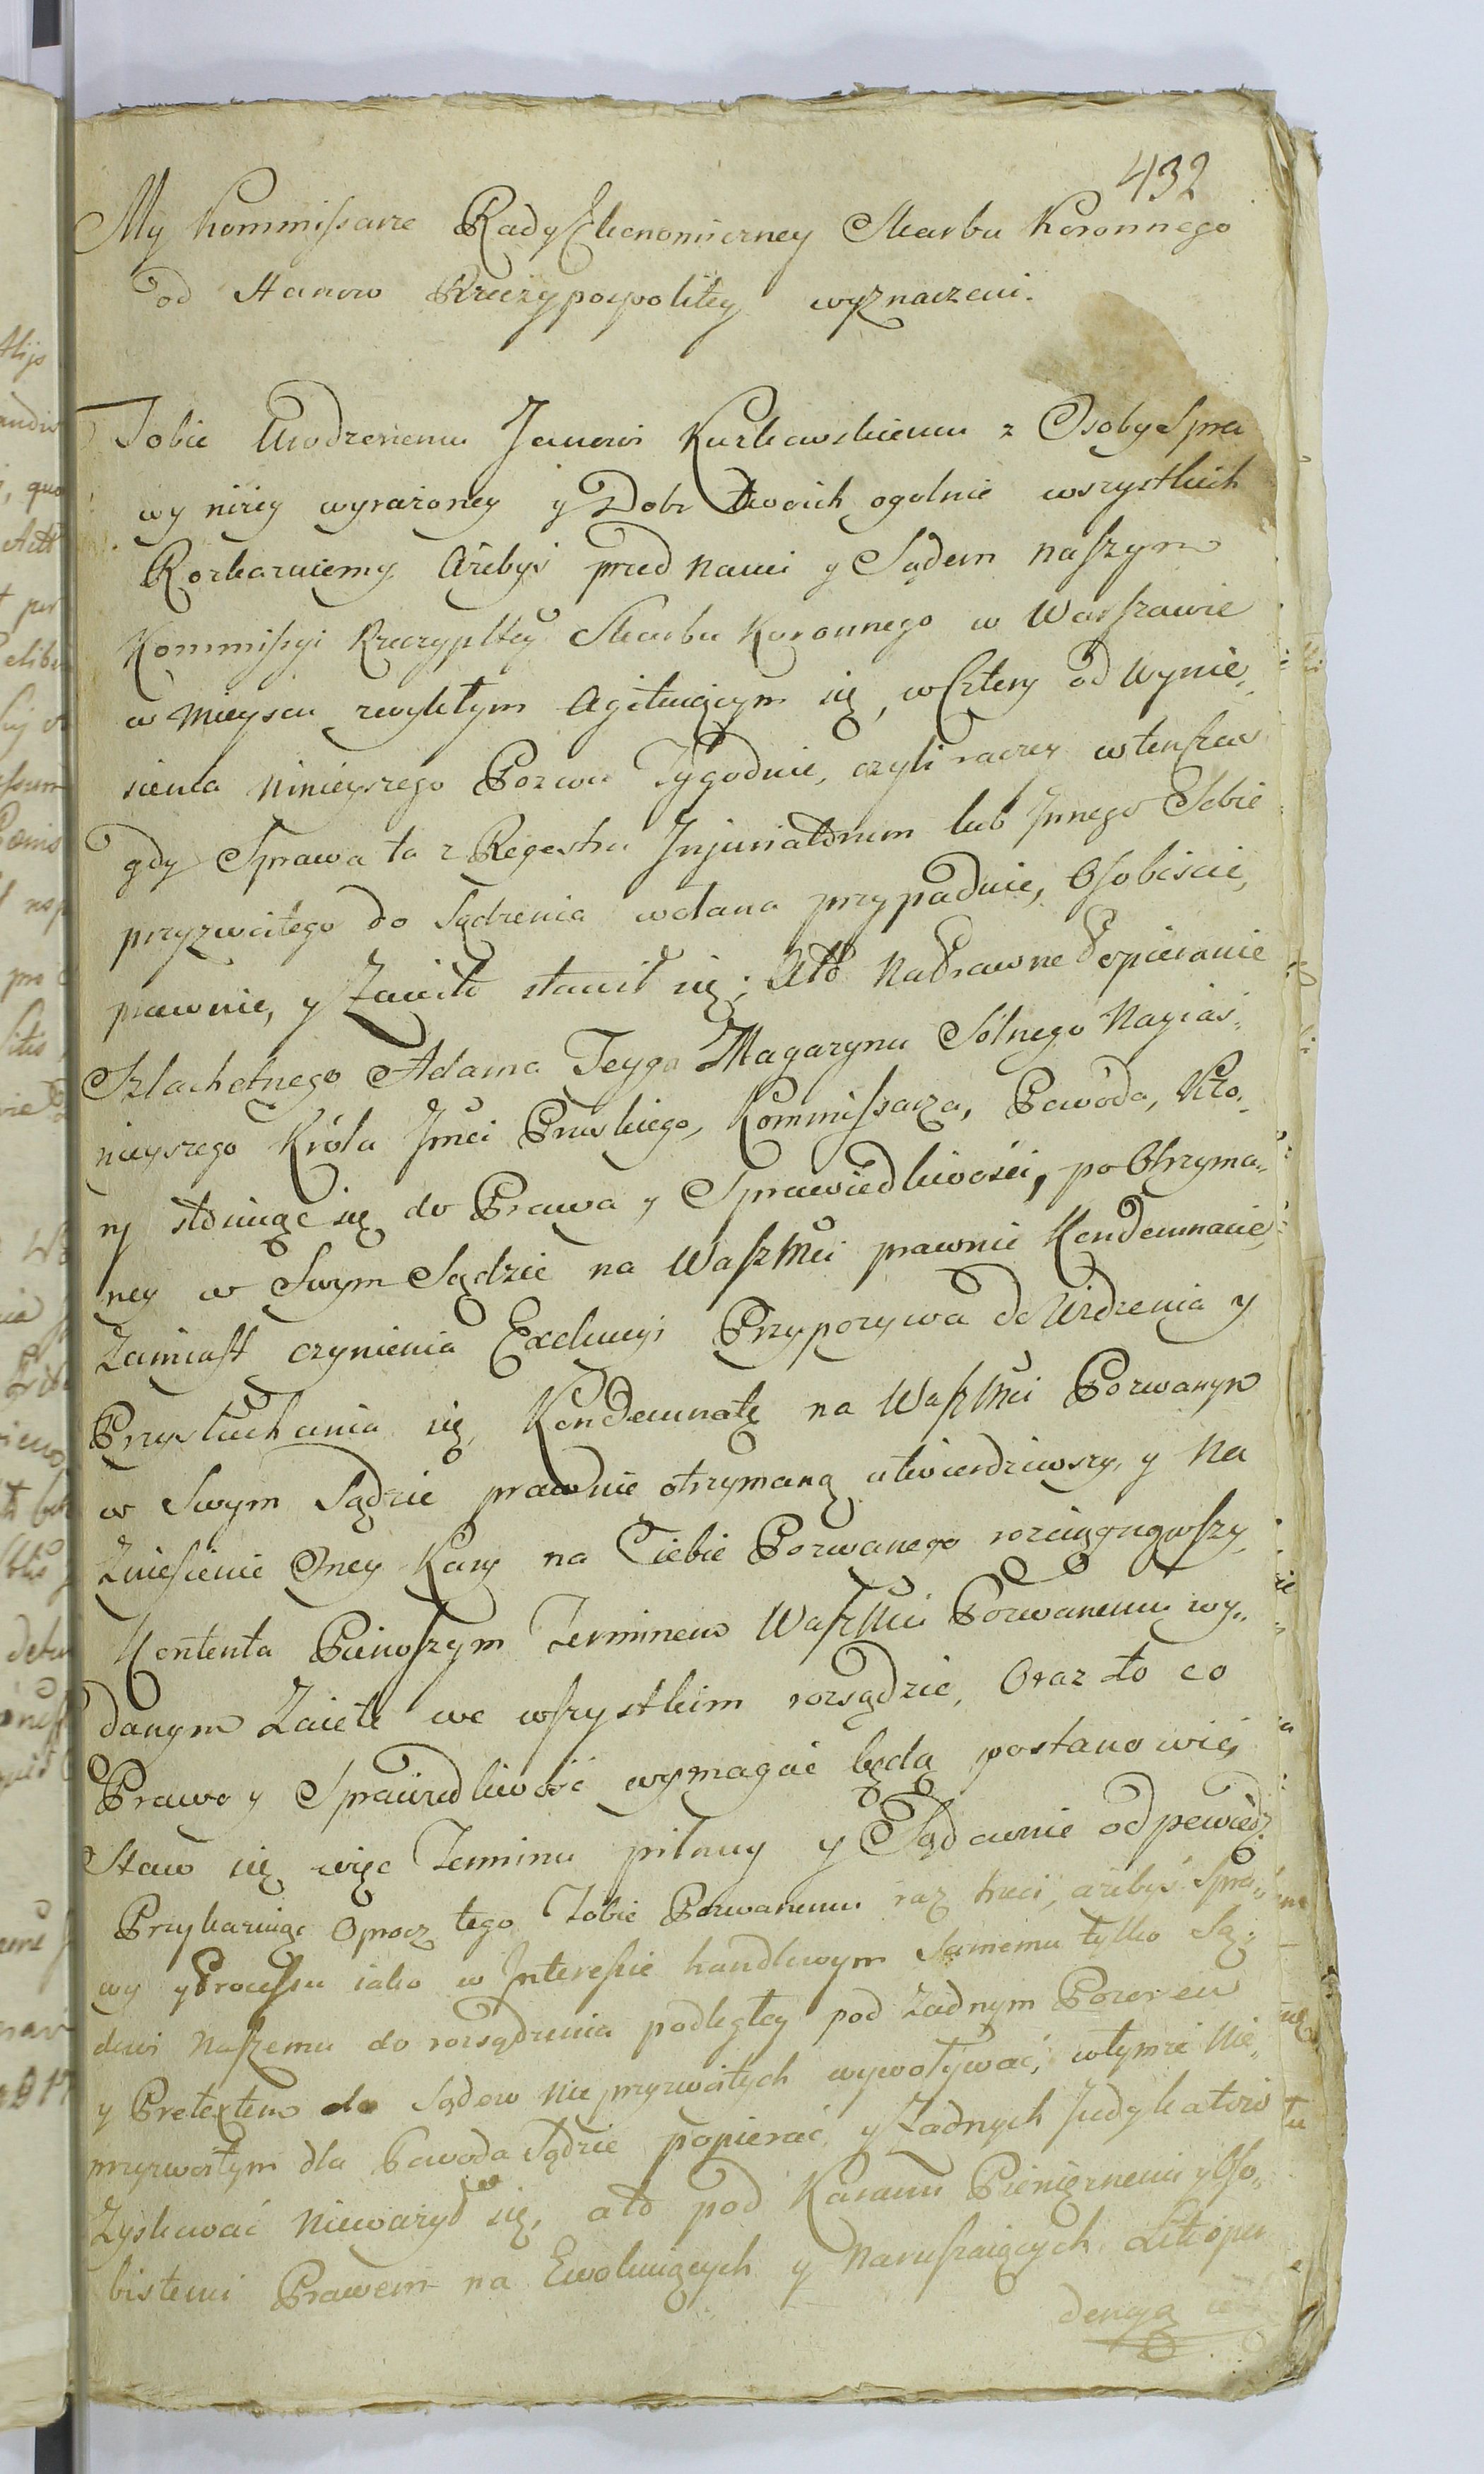 432
My Kommissarze Rady Ekonomiczney Skarbu Koronnego
od Stanow Rzeczypospolitey wyznaczeni.
Tobie Urodzonemu Janowi Kurkowskiemu z Osoby Spra
wy niżey wyrażoney y Dobr twoich ogolnie wszystkich
Rozkazuiemy Ażebyś przed nami y Sądem naszym
Kommissyi Rzeczypltey Skarbu Koronnego w Warszawie
w Mieyscu zwykłym Agituiącym się, w Cztery od Wynie„
sienia Ninieyszego Pozwu Tygodnie, czyli raczey wtenczas
gdy Sprawa ta z Regestru Injuriatorum lub Innego Sobie
przyzwoitego do Sądzenia wołana przypadnie, Osobiście,
prawnie, y Zawito stawił się; Ato Na Prawne Popieranie
Szlachetnego Adama Teyga Magazynu Solnego Nayiaś„
nieyszego Króla Jmci Pruskiego, Kommissarza, Powoda, Kto„
ry stosuiąc się do Prawa y Sprawiedliwości, po Otrzyma„
ney w Swym Sądzie na WaszMci prawnie Kondemnacie,
Zamiast czynienia Exekucyi Przypozywa do Widzenia y
Przysłuchania się, Kondemnatę na WaszMci Pozwanym
w Swym Sądzie prawnie otrzymaną utwierdziwszy, y Na
Zniesienie Oney Kary na Ciebie Pozwanego rozciągnąwszy,
Kontenta Pierwszym Terminem WaszMci Pozwanemu wy„
danym Zaięte we wszystkim rozsądzić, Oraz to co
Prawo y Sprawiedliwość wymagać będą postanowić,
Staw się więc Terminu pilnuy y Sądownie odpowiedz
Przykazuiąc Oprocz tego Tobie Pozwanemu raz trzeci, ażebyś Spra„
wy y Processu iako w Interessie handlowym Samemu tylko Są„
dowi Naszemu do rozsądzenia podległey pod żadnym Pozorem
y Pretextem do Sądow Nieprzyzwoitych wywoływać, w tymże Nie„
przyzwoitym dla Powoda Sądzie popierać, y Żadnych Judykatow
Zyskiwać Nieważył się, ato pod Karami Pieniężnemi y Oso„
bistemi Prawem na Ewokuiących y Naruszaiących Litispen
dencyą